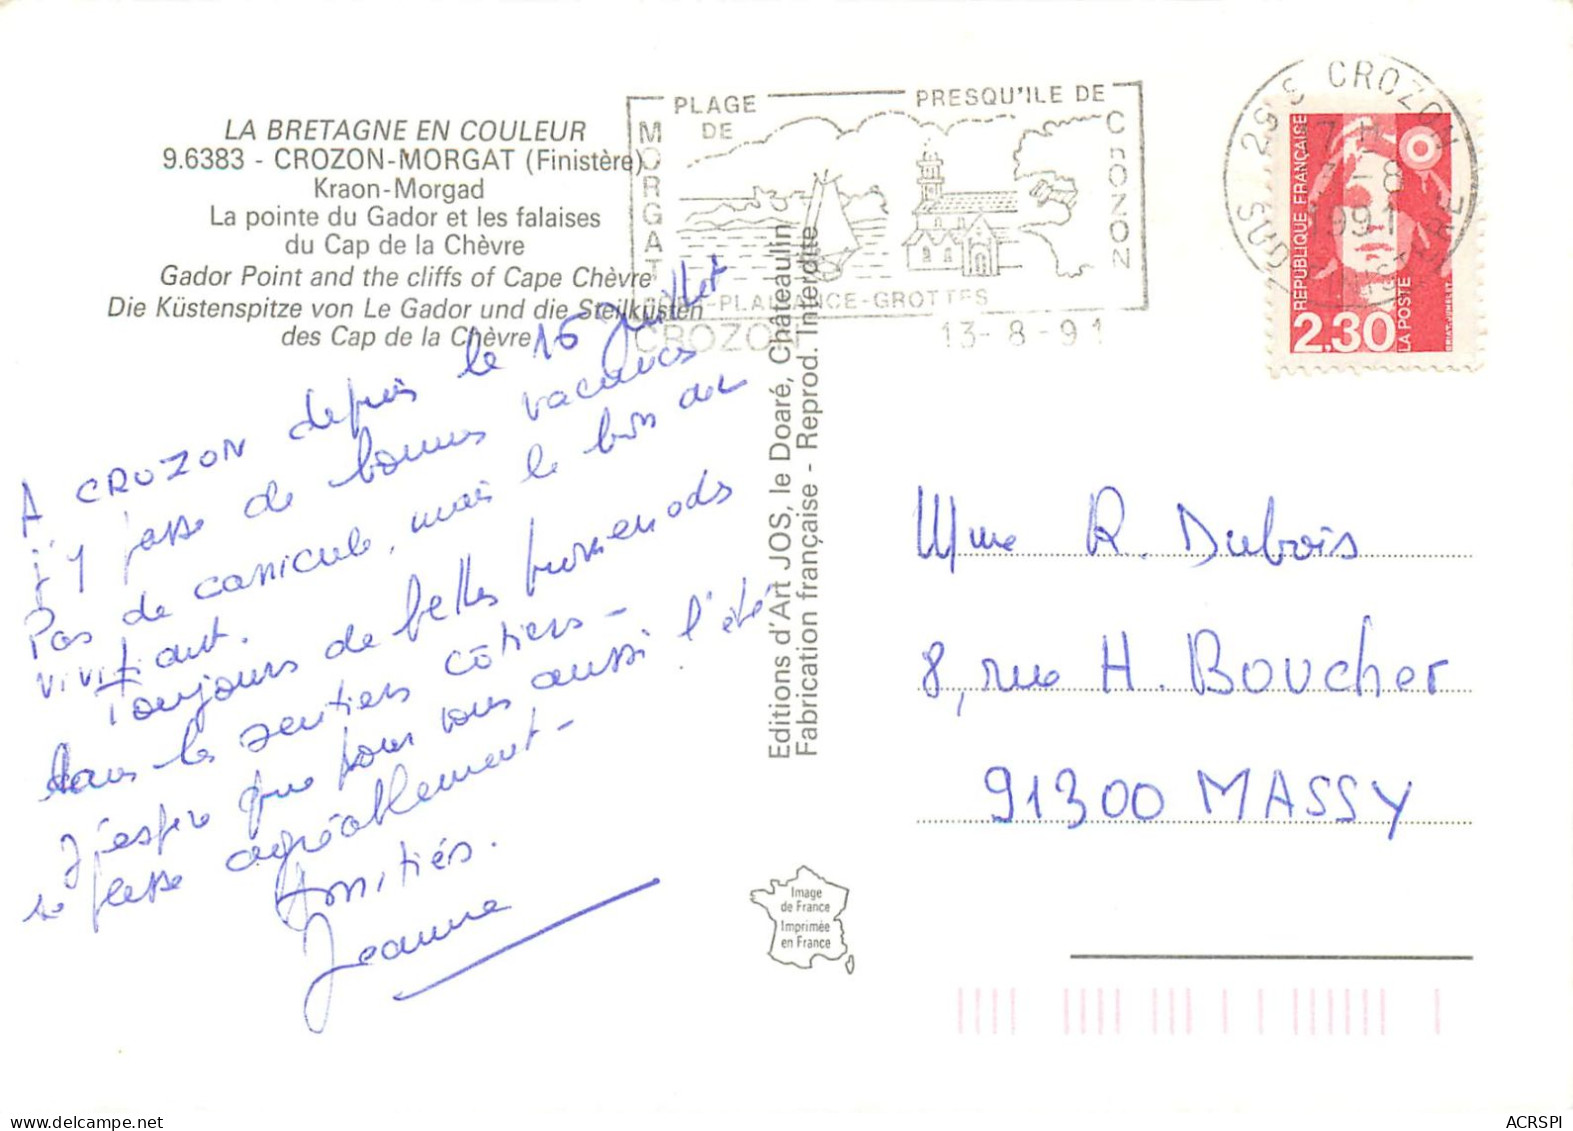 LA BRETAGNE EN COULEUR
9.6383 - CROZON-MORGAT (Finistère)
Kraon-Morgad
La pointe du Gador et les falaises
du Cap de la Chèvre
Gador Point and the cliffs of Cape Chèvre
Die Küstenspitze von Le Gador und die Steilküsten
des Cap de la Chèvre
A CROZON depuis le 15 Juillet
j'y passe de bonnes vacances
Pas de cannicule, mais le bon air
vivifiant.
Toujours de belles promenads
dans les sentiers côtiers -
J'espère que pour vous aussi l'été
se passe agréablement -
Amitiés.
Jeanne
PLAGE
DE
MORGAT
PRESQU'ILE DE
CROZON
PLAISANCE-GROTTES
CROZON
13-8-91
29 S CROZON
17 H
-8
1991
REPUBLIQUE FRANÇAISE
2,30
LA POSTE
BRIAT-JUMELET
Editions d'Art JOS, le Doaré, Châteaulin
Fabrication française - Reprod. Interdite
Mme R. Dubois
8, rue H. BOUCher
91300 MASSY
Image
de France
Imprimée
en France
ACRSPI